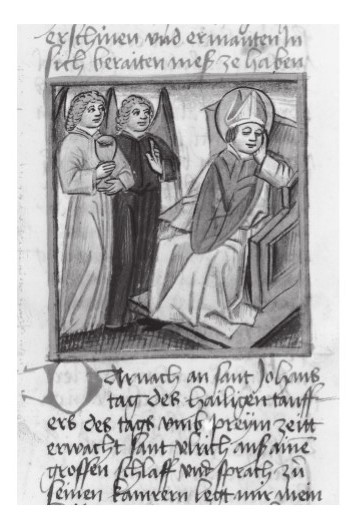 erschinen vnd ermanten In
sich beraiten mess ze haben
Darnach an sant Johans
tag des hailigen tauff
ers des tags vmb preym zeitt
erwacht sant vlrich auss aine
grossen schlaff vnd sprach zu
seinen kamrern legt mir mein